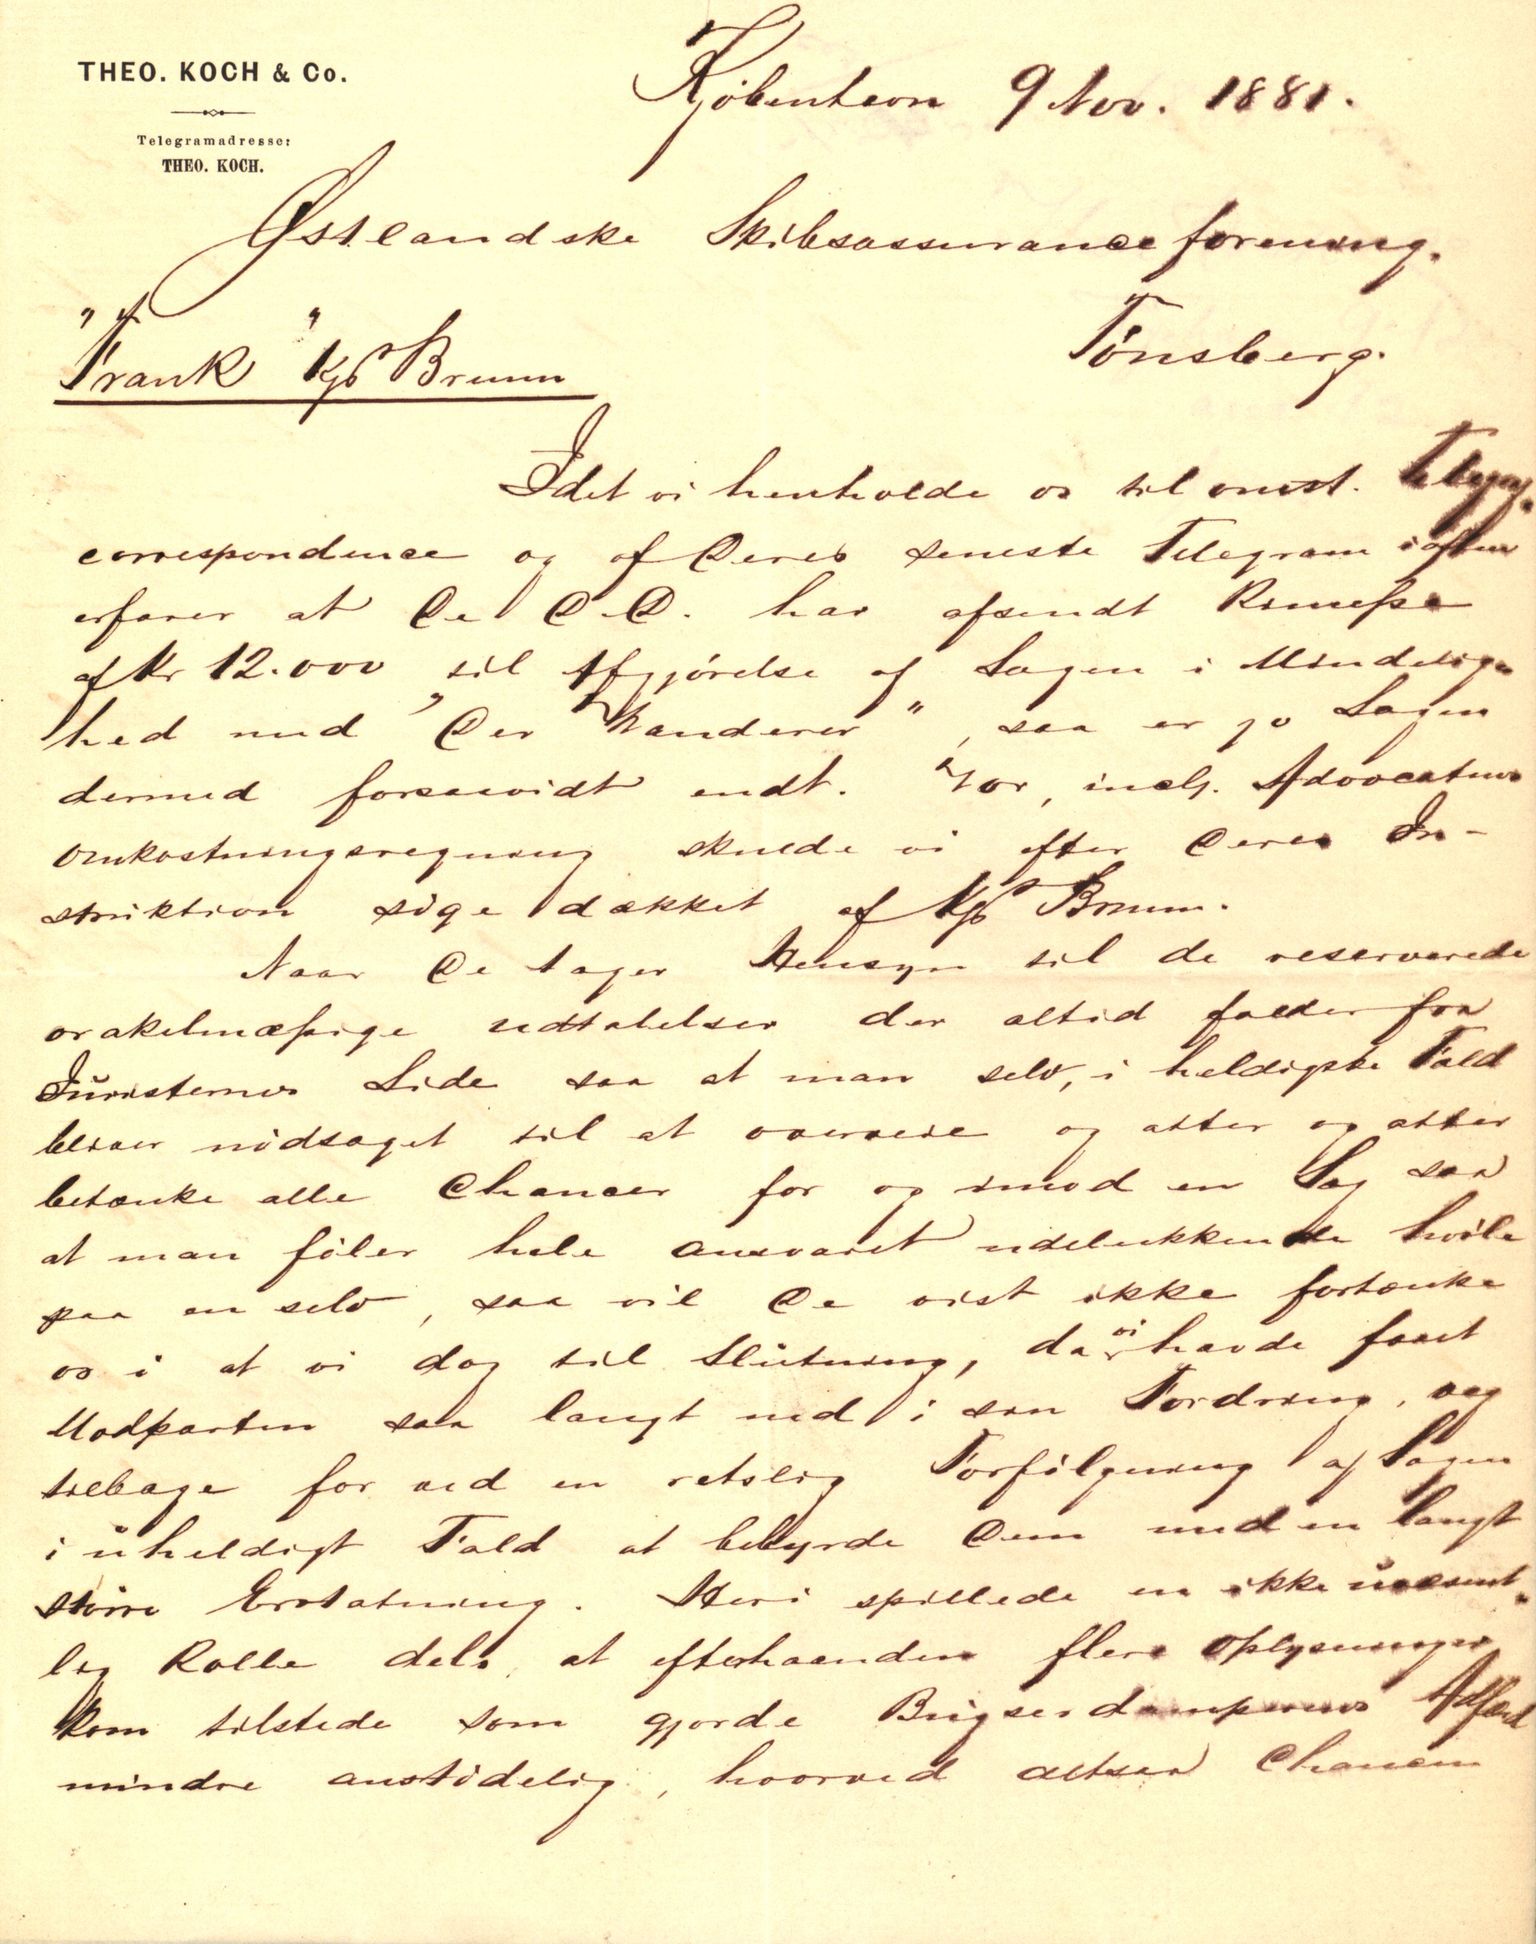 THEO. KOCH & Co.
Telegramadresse:
THEO. KOCH.
Kjøbenhavn 9 Nov. 1881.
Østlandske Skibsassuranceforening.
Tønsberg.
"Frank" Kpt Bruun
Idet vi henholde os til omst. Telegraf.
correspondence og af Deres seneste Telegram iaften
erfarer at De D.D. har afsendt Rimesse
af Kr 12.000 til Afgjørelse af Sagen i Mindelig-
hed med "Der Wanderer", saa er jo Sagen
dermed forsaavidt endt. Vor, incl. Advocatens
Omkostningsregning skulde vi efter Deres In-
struktion søge dækket af Kpt Bruun.
Naar De tager Hensyn til de reserverede
orakelmæssige udtalelser der altid falder fra
Juristernes Side saa at man selv, i heldigste Fald
bliver nødsaget til at overveie og atter og atter
betænke alle Chancer for og imod en Sag saa
at man føler hele ansvaret udelukkende hvile
paa en selv, saa vil De vist ikke fortænke
os i at vi dog til Slutning, da vi havde faaet
Modparten saa langt ned i sin Fordring, veg
tilbage for ved en retslig Forfølgning af Sagen
i uheldigt Fald at bebyrde Dem med en langt
større Erstatning. Heri spillede en ikke uvæsent-
lig Rolle dels, at efterhaanden flere Oplysninger
kom tilstede som gjorde Bugserdamperens Adfærd
mindre anstødelig, hvorved altsaa Chancen